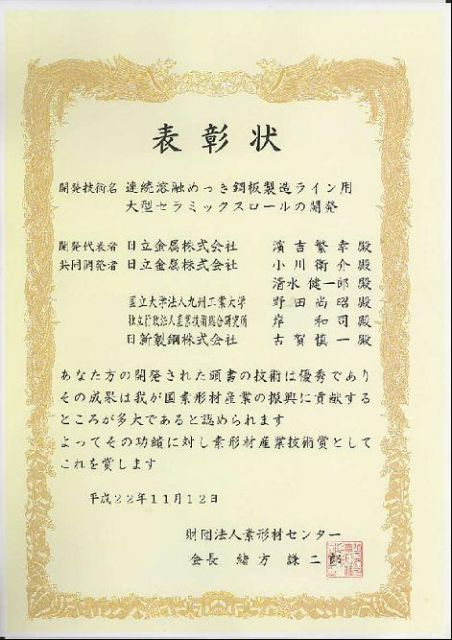 表彰状
開発技術名 連続溶融めっき鋼板製造ライン用
大型セラミックスロールの開発
開発代表者 日立金属株式会社 濱吉繁幸殿
共同開発者 日立金属株式会社 小川衛介殿
清水健一郎殿
国立大学法人九州工業大学 野田尚昭殿
独立行政法人産業技術総合研究所 岸 和司殿
日新製鋼株式会社 古賀慎一殿
あなた方の開発された頭書の技術は優秀であり
その成果は我が国素形材産業の振興に貢献する
ところが多大であると認められます
よってその功績に対し素形材産業技術賞として
これを賞します
平成22年11月12日
財団法人素形材センター
会長 緒方謙二郎